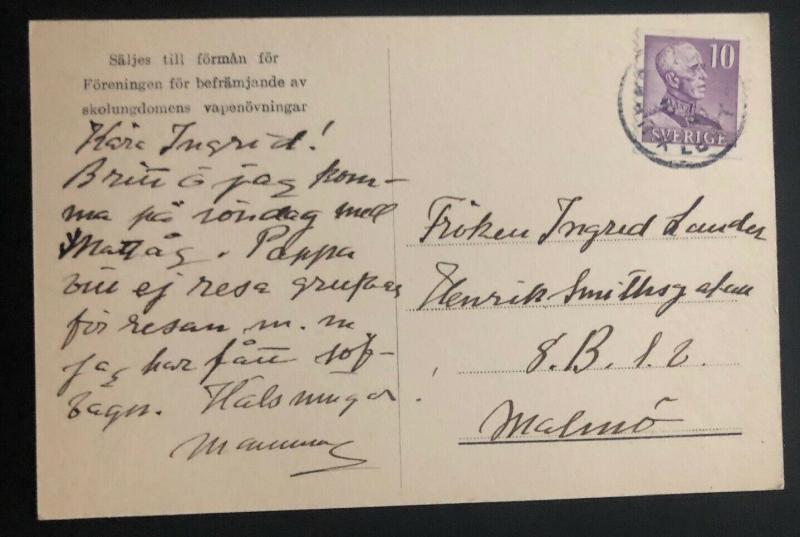 Säljes till förmån för
Föreningen för befrämjande av
skolungdomens vapenövningar
Kära Ingrid!
Britt o jag kom-
ma på söndag med
Pappa
vill ej resa
för resan m. m
jag har fått sof-
vagn. Hälsningar
Mamma
10
SVERIGE
Fröken Ingrid Lander
Henrik Smithsgatan
8. B. 1. 2.
Malmö